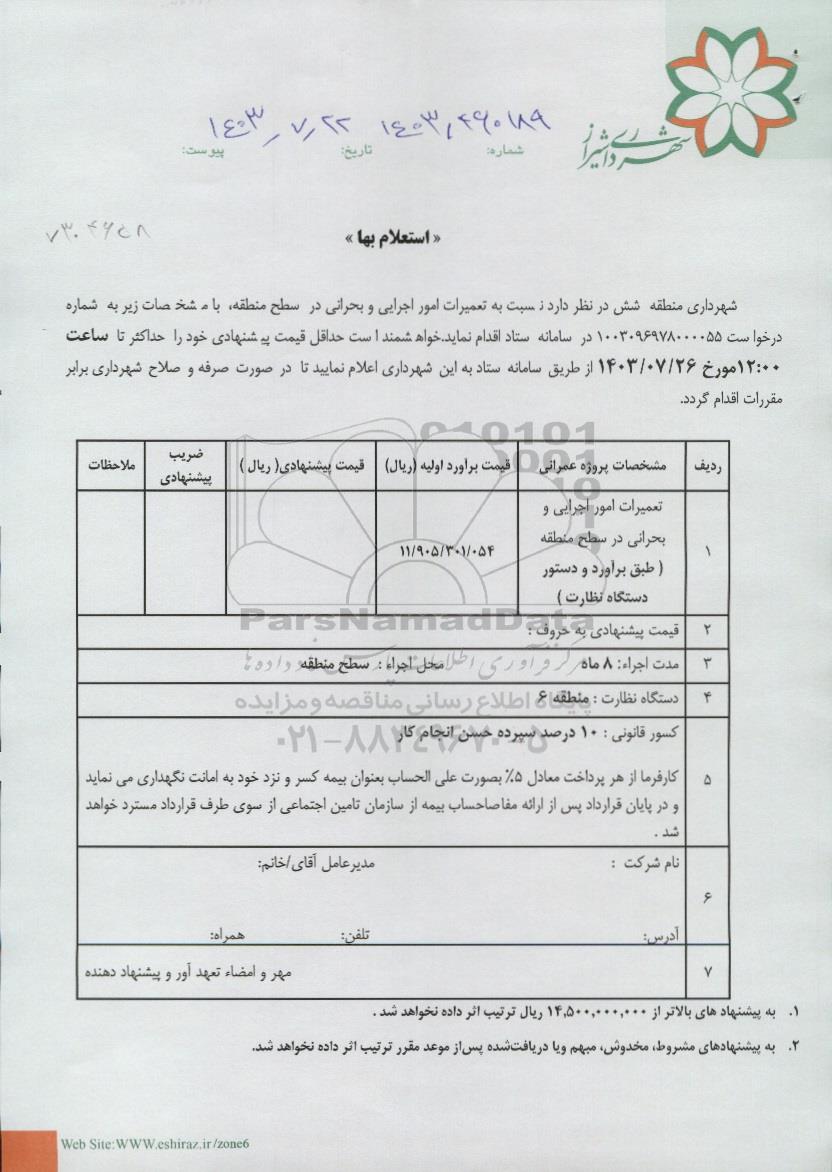 شهرداری شیراز
شماره: ۱۴۰۳/۴۶۰۱۸۹ تاریخ: ۱۴۰۳/۷/۲۲ پیوست:
« استعلام بها »
شهرداری منطقه شش در نظر دارد نسبت به تعمیرات امور اجرایی و بحرانی در سطح منطقه، با مشخصات زیر به شماره
درخواست ۱۰۰۳۰۹۶۹۷۸۰۰۰۰۵۵ در سامانه ستاد اقدام نماید.خواهشمند است حداقل قیمت پیشنهادی خود را حداکثر تا ساعت
۱۲:۰۰مورخ ۱۴۰۳/۰۷/۲۶ از طریق سامانه ستاد به این شهرداری اعلام نمایید تا در صورت صرفه و صلاح شهرداری برابر
مقررات اقدام گردد.
ردیف مشخصات پروژه عمرانی قیمت برآورد اولیه (ریال) قیمت پیشنهادی( ریال ) ضریب پیشنهادی ملاحظات
۱ تعمیرات امور اجرایی و
بحرانی در سطح منطقه
( طبق برآورد و دستور
دستگاه نظارت )
۱۱/۹۰۵/۳۰۱/۰۵۴
۲ قیمت پیشنهادی به حروف :
۳ مدت اجراء: ۸ ماه محل اجراء : سطح منطقه
۴ دستگاه نظارت : منطقه ۶
۵ کسور قانونی : ۱۰ درصد سپرده حسن انجام کار
کارفرما از هر پرداخت معادل ۵٪ بصورت علی الحساب بعنوان بیمه کسر و نزد خود به امانت نگهداری می نماید
و در پایان قرارداد پس از ارائه مفاصاحساب بیمه از سازمان تامین اجتماعی از سوی طرف قرارداد مسترد خواهد
شد .
۶ نام شرکت : مدیرعامل آقای/خانم:
آدرس: تلفن: همراه:
۷ مهر و امضاء تعهد آور و پیشنهاد دهنده
۱. به پیشنهاد های بالاتر از ۱۴,۵۰۰,۰۰۰,۰۰۰ ریال ترتیب اثر داده نخواهد شد .
۲. به پیشنهادهای مشروط، مخدوش، مبهم ویا دریافت‌شده پس‌از موعد مقرر ترتیب اثر داده نخواهد شد.
Web Site:WWW.eshiraz.ir/zone6
ParsNamadData
پایگاه اطلاع رسانی مناقصه و مزایده
۰۲۱-۸۸۳۴۹۶۷۰-۵